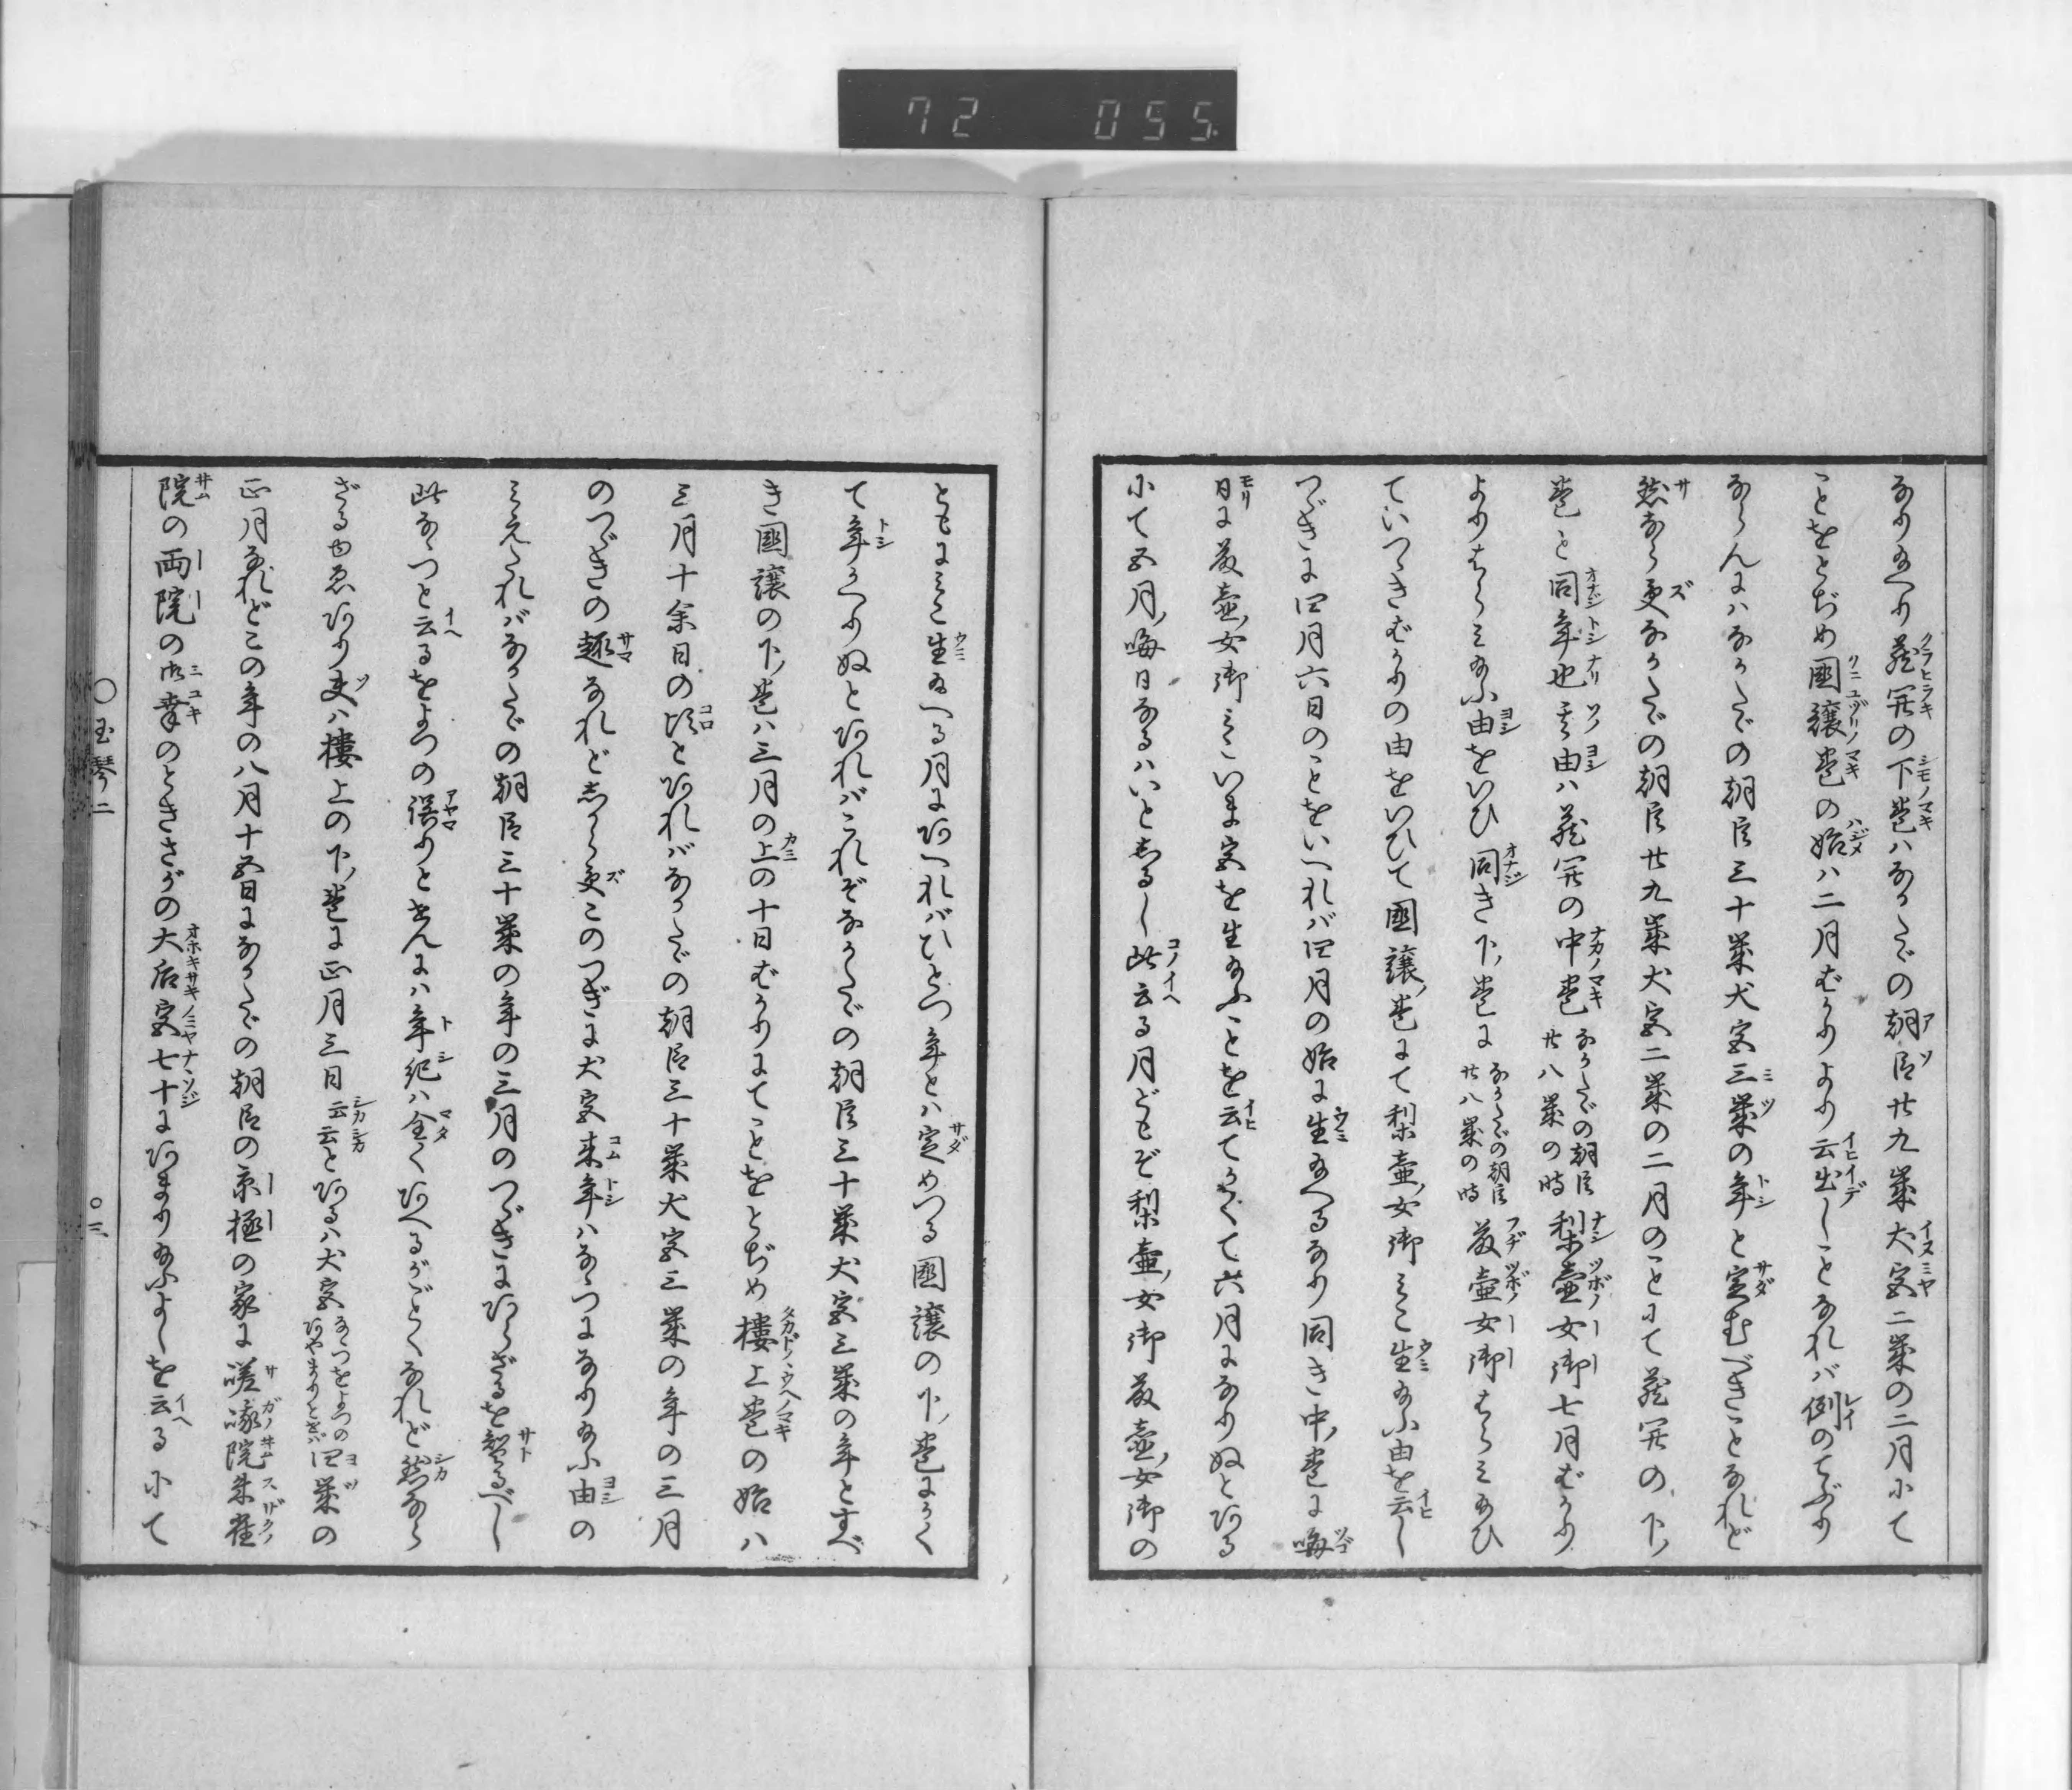 72 055
なり給へり蔵開の下巻ハなかたゞの朝臣廿九葉犬宮二葉の二月にて
ことをとぢめ國譲巻の始ハ二月ばかりより云出しことなれバ例のてぶり
ならんにハなかたゞの朝臣三十葉犬宮三葉の年と定むべきことなれど
然なら受なかたゞの朝臣廿九葉犬宮二葉の二月のことにて蔵開の下
巻と同年也其由ハ蔵開の中巻なかたゞの朝臣廿八葉の時梨壷女御七月ばかり
よりはらミ給ふ由をいひ同き下巻になかたゞの朝臣廿八葉の時藤壷女御はらミ給ひ
ていつきばかりの由をいひて國譲巻にて梨壷女御ミこ生給ふ由を云し
つゞきに四月六日のことをいへれバ四月の始に生給へるなり同き中巻に晦
日に藤壷女御ミこいま宮を生給ふことを云てかくて六月になりぬとある
にて五月晦日なるハいとしるし此云る月どもぞ梨壷女御藤壷女御の
ともにミこ生給へる月にあへれバひとつ年とハ定めつる國譲の下巻にかく
て年かへりぬとあれバこれぞなかたゞの朝臣三十葉犬宮三葉の年とすべ
き國譲の下巻ハ三月の上の十日ばかりにてことをとぢめ樓上巻の始ハ
三月十余日の頃とあれバなかたゞの朝臣三十葉犬宮三葉の年の三月
のつゞきの趣なれどしから受このつぎに犬宮来年ハなゝつになり給ふ由の
ミえたれバなかたゞの朝臣三十葉の年の三月のつゞきにあらざるを智るべし
此なゝつと云るをよつの誤りとせんにハ年紀ハ全くあへるがごとくなれど然なら
ざるゆゑあり其ハ樓上の下巻に正月三日云云とあるハ犬宮なゝつをよつのあやまりとせバ四葉の
正月なれどこの年の八月十五日になかたゞの朝臣の京極の家に嵯峨院朱雀
院の両院の御幸のときさがの大后宮七十にあまり給ふよしを云るにて
○玉琴二
○三